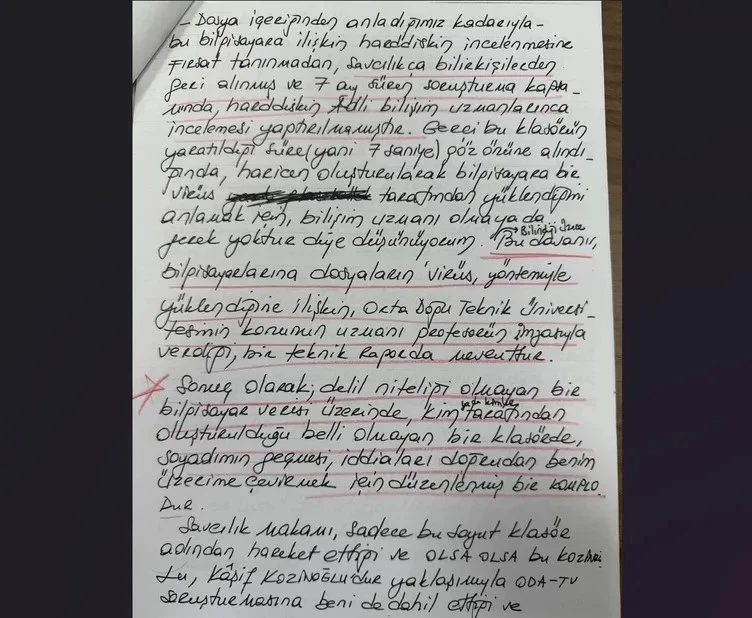 - Dosya içeriğinden anladığımız kadarıyla -
bu bilgisayara ilişkin harddiskin incelenmesine
fırsat tanınmadan, savcılıkça bilirkişilerden
geri alınmış ve 7 ay süren soruşturma kapsa-
mında, harddiskin Adli bilişim uzmanlarınca
incelemesi yaptırılmamıştır. Gerçi bu klasörün
yaratıldığı süre (yani 7 saniye) göz önüne alındı-
ğında, haricen oluşturularak bilgisayara bir
virüs tarafından yüklendiğini
anlamak için, bilişim uzmanı olmaya da
gerek yoktur diye düşünüyorum. "Bu davanın,
Bilindiği üzere
bilgisayarlarına dosyaların 'virüs, yöntemiyle
yüklendiğine ilişkin, Orta Doğu Teknik Üniversi-
tesinin konunun uzmanı profesörün imzasıyla
verdiği, bir teknik raporda mevcuttur.
Sonuç olarak; delil niteliği olmayan bir
bilgisayar verisi üzerinde, kim tarafından
oluşturulduğu belli olmayan bir klasörde,
soyadımın geçmesi, iddiaları doğrudan benim
üzerime çevirmek için düzenlenmiş bir KOMPLO
DUR.
Savcılık Makamı, sadece bu soyut klasör
adından hareket ettiği ve OLSA OLSA bu kozinoğ-
lu, Kâşif KOZİNOĞLU'dur yaklaşımıyla ODA-TV
soruşturmasına beni de dahil ettiği ve